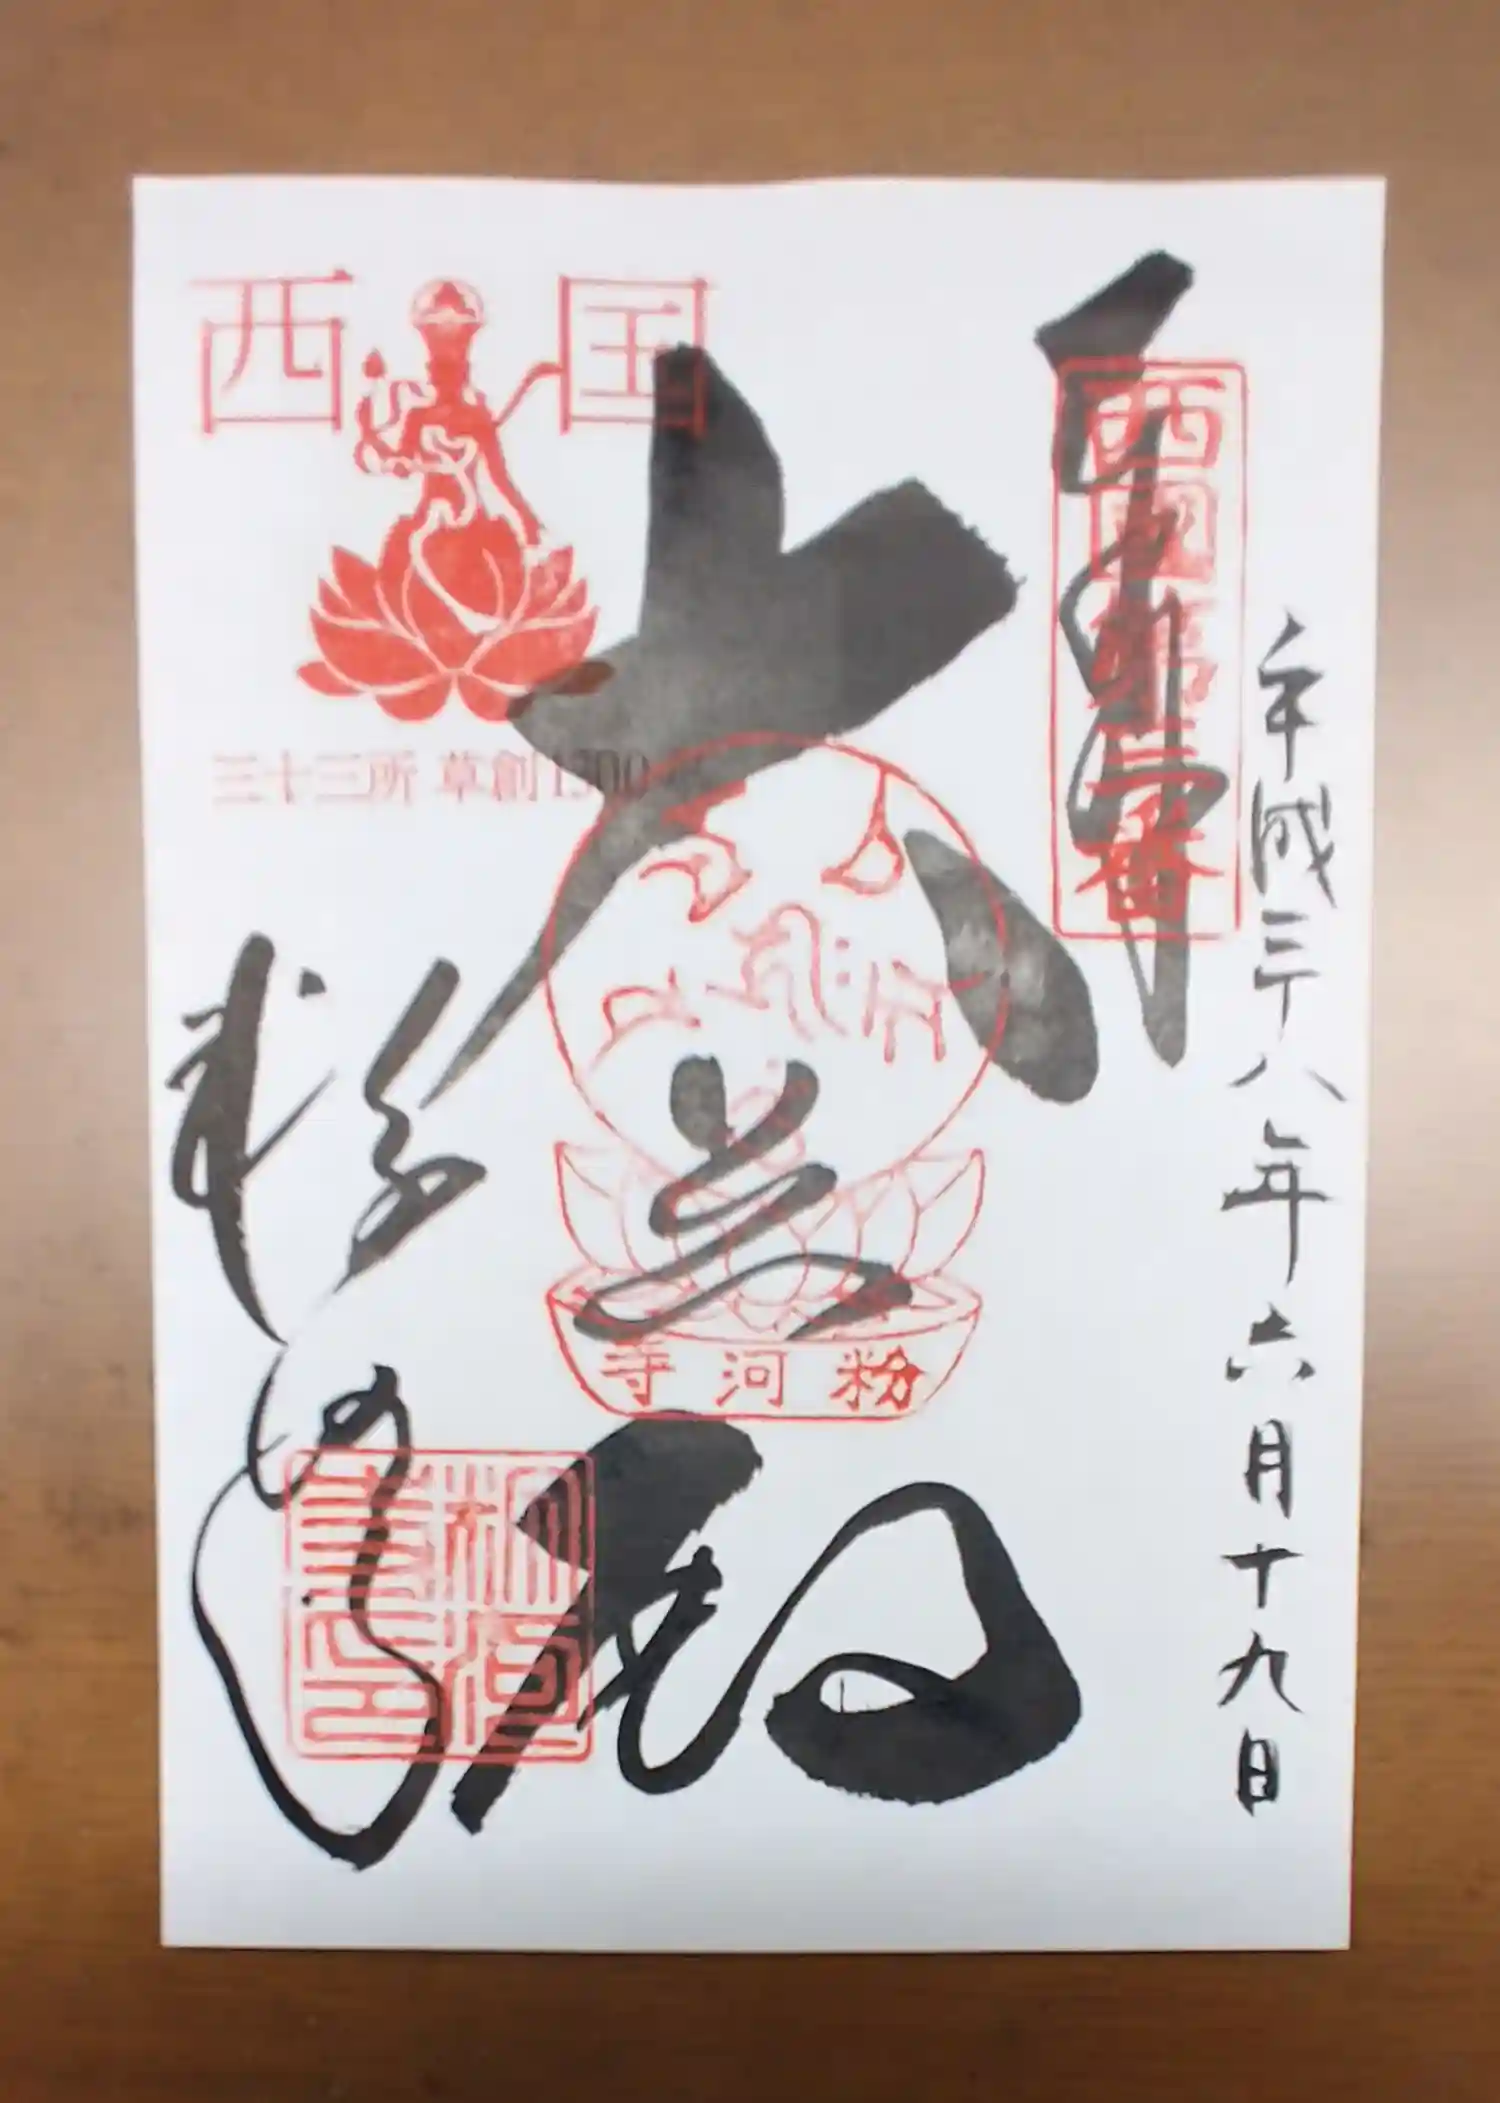 平成二十八年六月十九日
奉拝
西国第三番
大悲殿
粉河寺
西国
三十三所 草創1300年
粉河寺